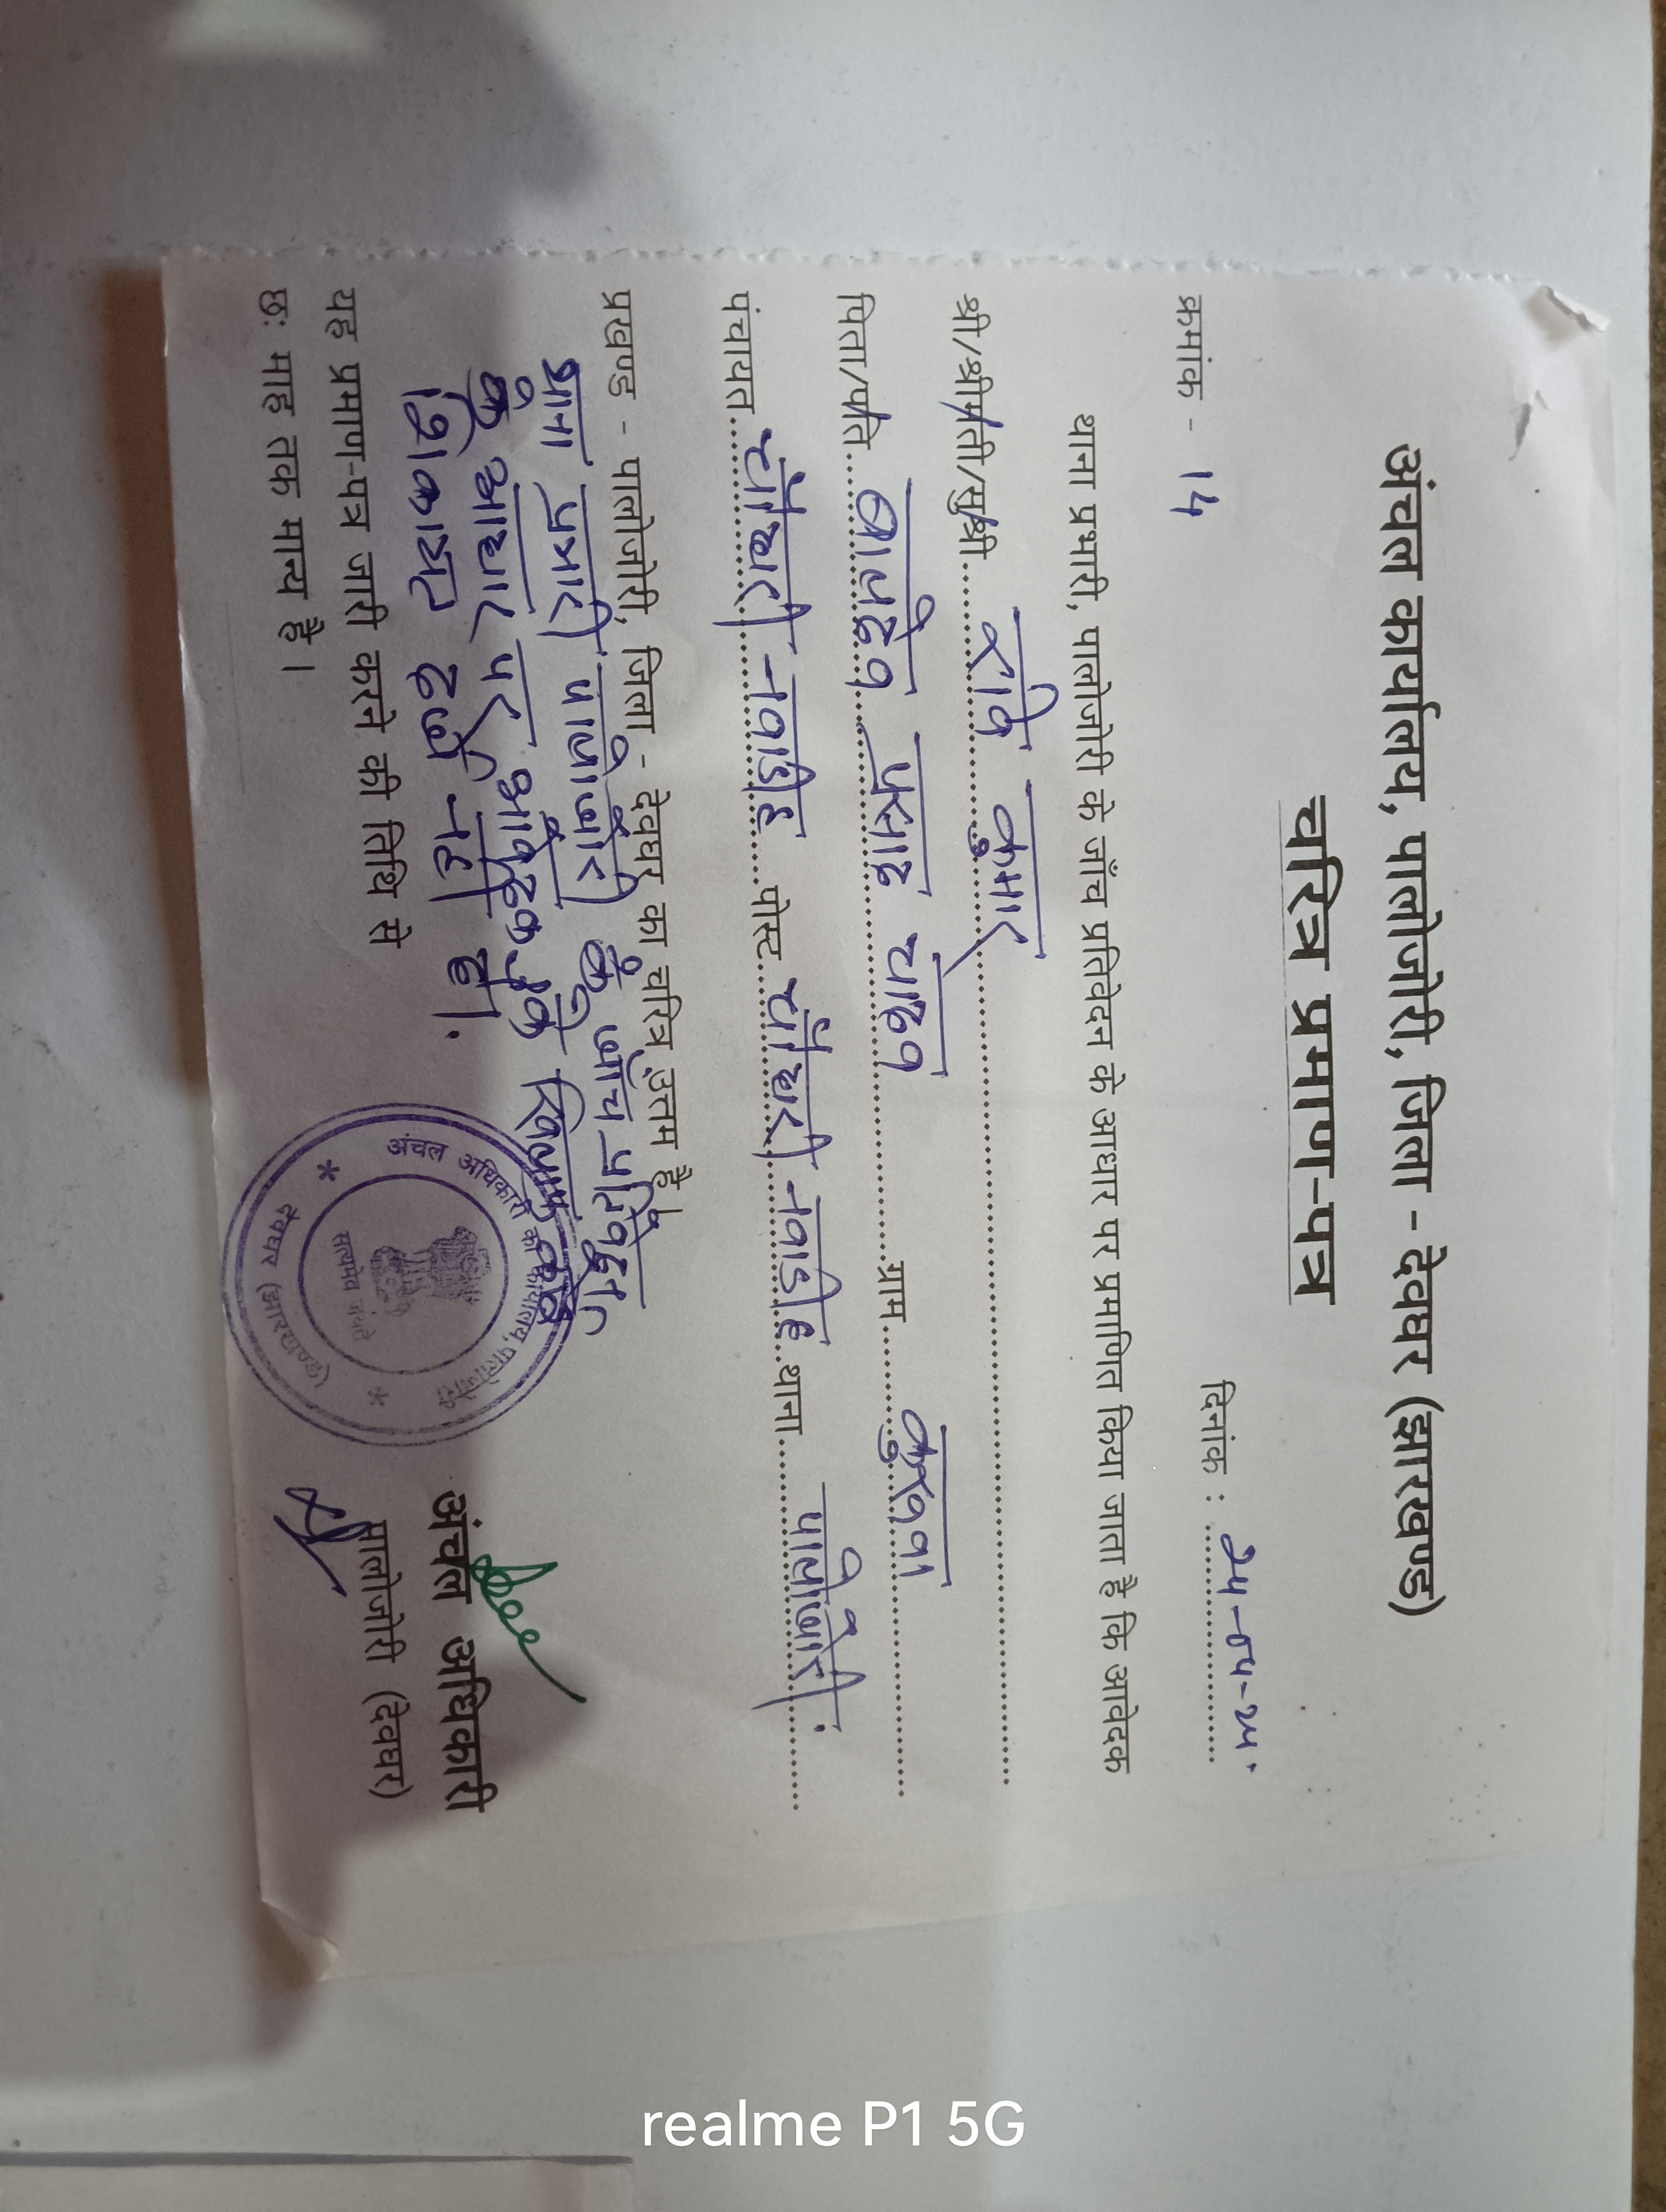 अंचल कार्यालय, पालोजोरी, जिला - देवघर (झारखण्ड)
चरित्र प्रमाण-पत्र
क्रमांक - 14 दिनांक :
थाना प्रभारी, पालोजोरी के जाँच प्रतिवेदन के आधार पर प्रमाणित किया जाता है कि आवेदक
श्री/श्रीमती/सुश्री रवि कुमार
पिता/पति बालदेव प्रसाद यादव ग्राम
पंचायत नवाडीह पोस्ट नवाडीह थाना पालोजोरी
प्रखण्ड - पालोजोरी, जिला - देवघर का चरित्र उत्तम है।
थाना प्रभारी पालोजोरी के जाँच प्रतिवेदन
के आधार पर आवेदक के खिलाफ कोई
शिकायत दर्ज नहीं है।
यह प्रमाण-पत्र जारी करने की तिथि से
छः माह तक मान्य है।
अंचल अधिकारी का कार्यालय, पालोजोरी
सत्यमेव जयते
देवघर (झारखण्ड)
अंचल अधिकारी
पालोजोरी (देवघर)
realme P1 5G